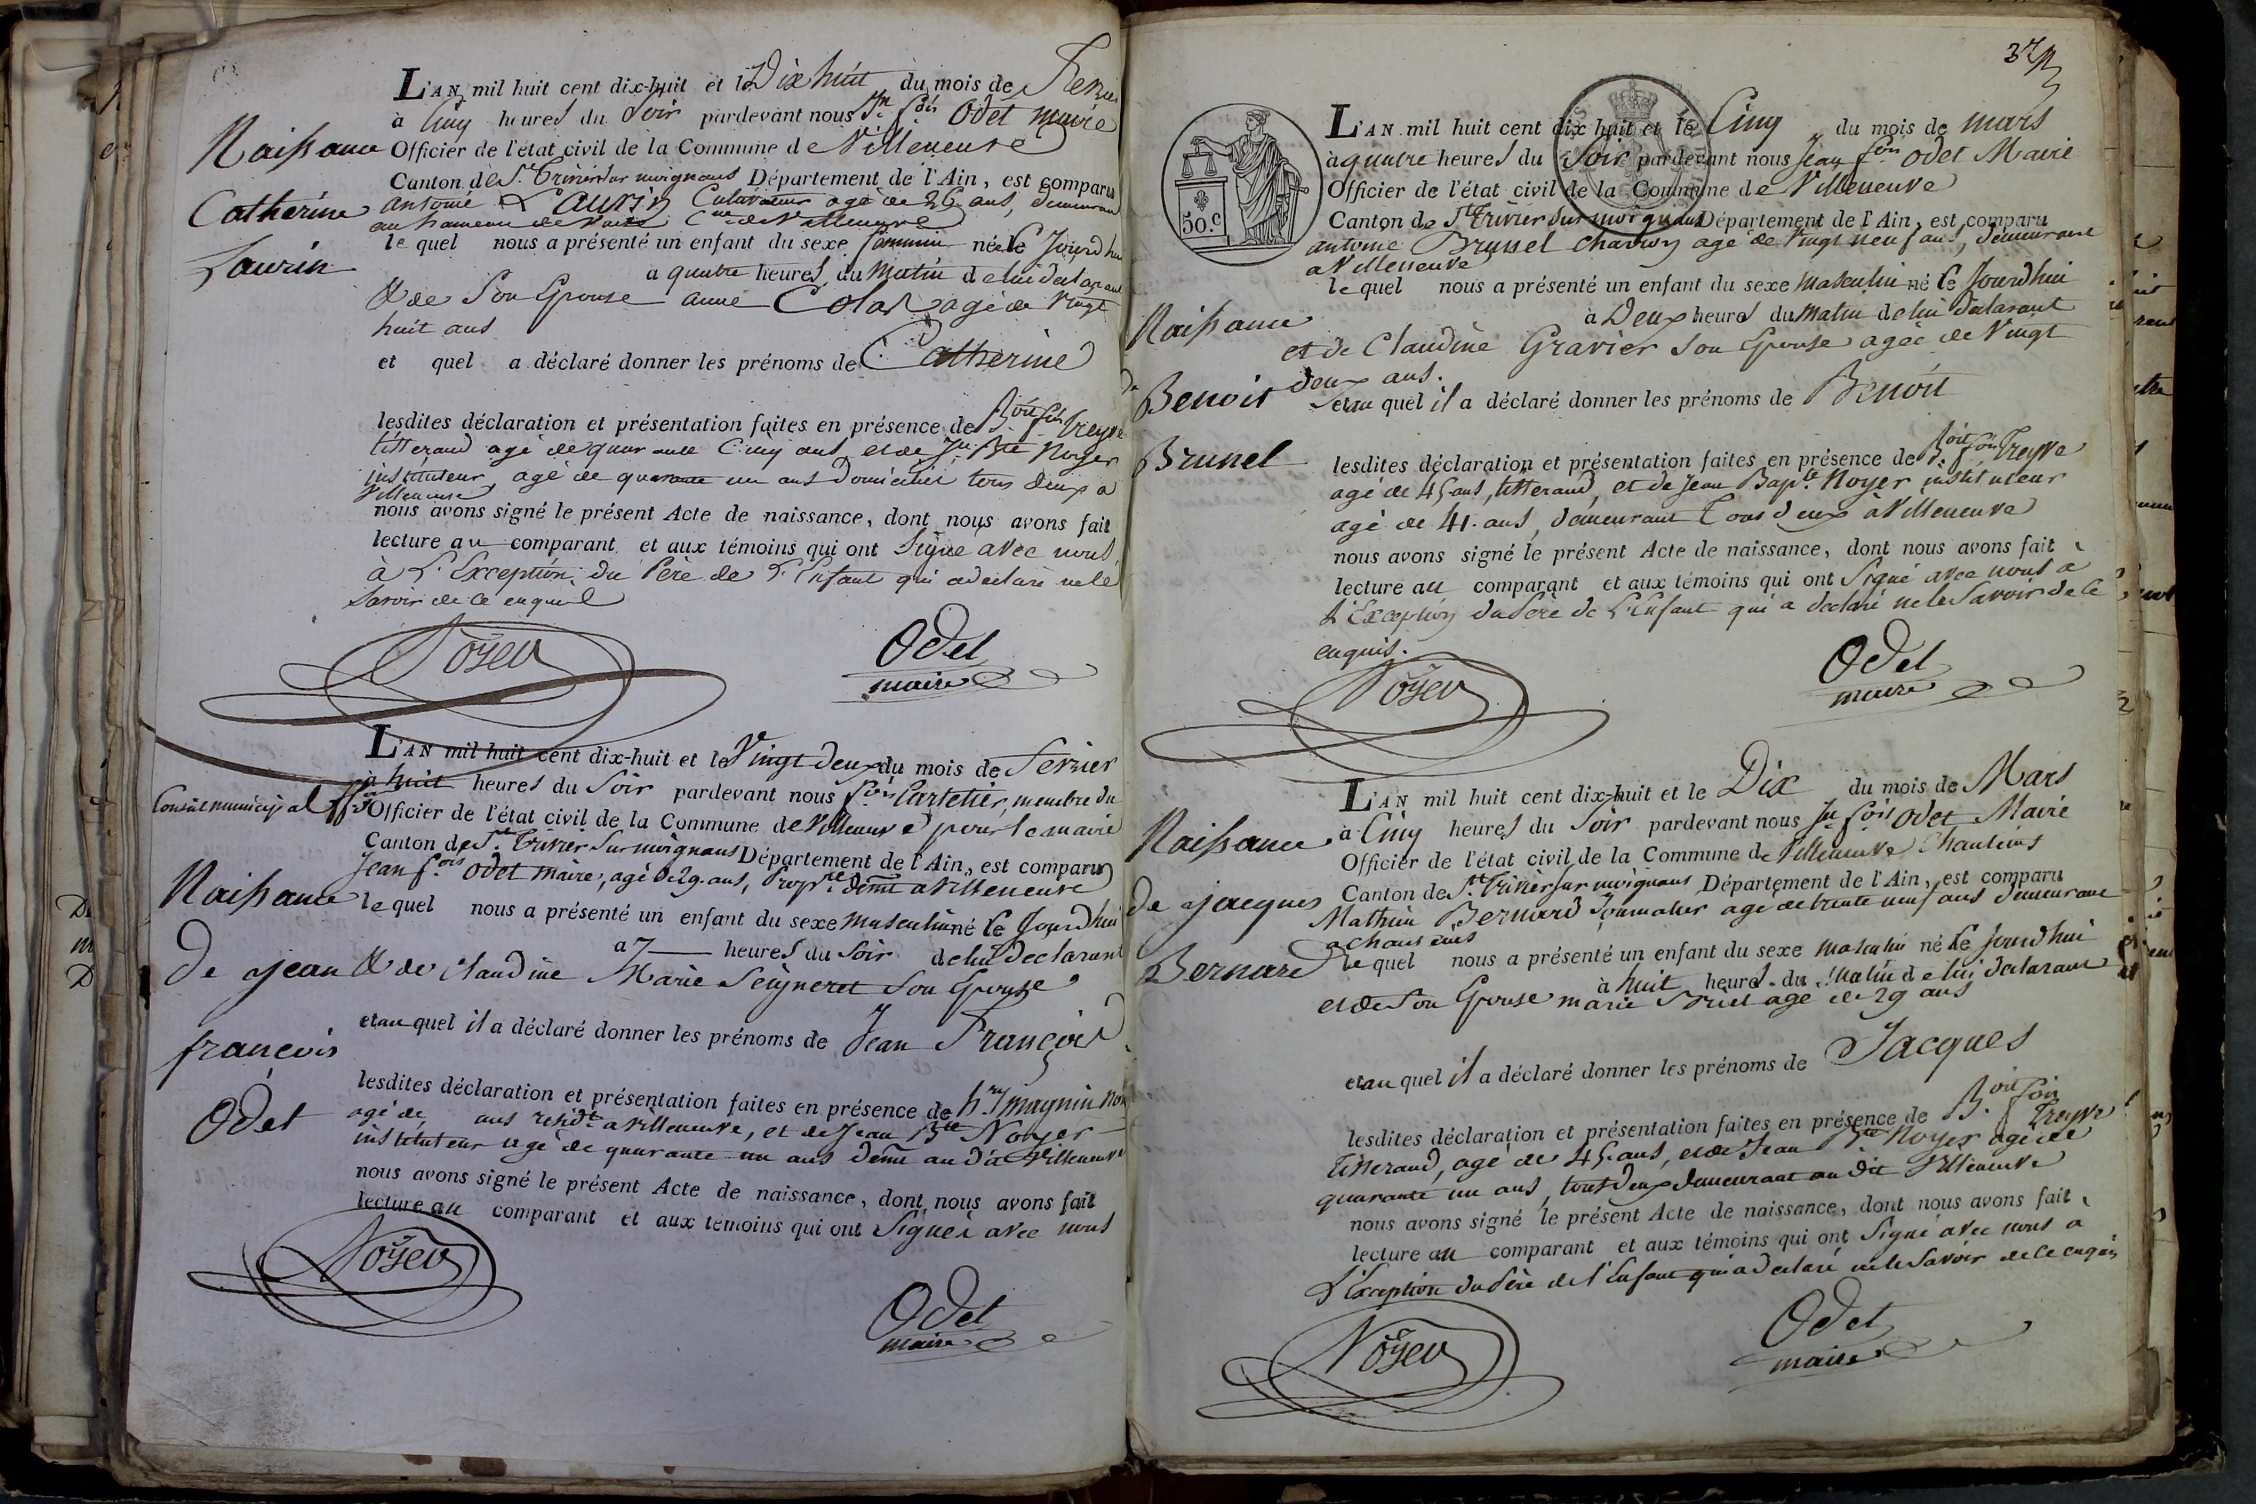 L'AN mil huit cent dix-huit et le Dix huit du mois de Fevrier
à Cinq heures du Soir pardevant nous Jn. fois Odet maire
Naissance
Officier de l'état civil de la Commune de Villeneuve
Canton de St. Trivier sur moignans Département de l'Ain, est comparu
Catherine
antoine Laurin Cultivateur agé de 26 ans, demeurant
au hameau de Cne de Villeneuve
Laurin
le quel nous a présenté un enfant du sexe féminin née le Jourd'hui
a quatre heures du Matin de lui déclarant
& de Son Epouse anne Colas agée de Vingt
huit ans
et quel a déclaré donner les prénoms de Catherine
lesdites déclaration et présentation faites en présence de Boit fois Treyve
titterand agé de quarante Cinq ans, et de Jn. Bte Noyer
instituteur, agé de quarante un ans Domicilié tous deux a
Villeneuve
nous avons signé le présent Acte de naissance, dont nous avons fait
lecture au comparant et aux témoins qui ont Signé avec nous
à L'Exception du Père de L'Enfant qui a déclaré ne le
Savoir de ce enquil
Noyer
Odet
maire
L'AN mil huit cent dix-huit et le Vingt deux du mois de Février
à huit heures du Soir pardevant nous fois Cartelier, membre du
Conseil municipal
Officier de l'état civil de la Commune de Villeneuve pour le maire
Canton de St. Trivier Sur moignans Département de l'Ain, est comparu
Jean fois Odet maire, agé de 29 ans, Propre. demt a Villeneuve
Naissance
le quel nous a présenté un enfant du sexe masculin né le Jourd'hui
a 7 heures du Soir de lui déclarant
de jean
& de Claudine Marie Seigneret Son Epouse
françois
et au quel il a déclaré donner les prénoms de Jean François
Odet
lesdites déclaration et présentation faites en présence de hry maynin
agé de ans résidt a villeneuve, et de Jean Bte Noyer
instituteur agé de quarante un ans demt au dit Villeneuve
nous avons signé le présent Acte de naissance, dont nous avons fait
lecture au comparant et aux témoins qui ont Signé avec nous
Noyer
Odet
maire
37
50.c
L'AN mil huit cent dix huit et le Cinq du mois de mars
à quatre heures du Soir pardevant nous Jean fois Odet Maire
Officier de l'état civil de la Commune de Villeneuve
Canton de St. Trivier Sur moignans Département de l'Ain, est comparu
antoine Brunel Charron agé de Vingt neuf ans, demeurant
a Villeneuve
le quel nous a présenté un enfant du sexe masculin né le Jourd'hui
Naissance
à Deux heures du Matin de lui déclarant
et de Claudine Gravier Son Epouse agée de Vingt
deux ans.
de Benoit
et au quel il a déclaré donner les prénoms de Benoit
Brunel
lesdites déclaration et présentation faites en présence de Boit fois Treyve
agé de 45 ans, titterand, et de Jean Bapte Noyer instituteur
agé de 41. ans, demeurant Tous deux à Villeneuve
nous avons signé le présent Acte de naissance, dont nous avons fait
lecture au comparant et aux témoins qui ont Signé avec nous a
L'Exception du Père de L'Enfant qui a déclaré ne le Savoir de ce
enquis.
Noyer
Odet
maire
L'AN mil huit cent dix-huit et le Dix du mois de Mars
à Cinq heures du Soir pardevant nous Jn fois Odet Maire
Naissance
Officier de l'état civil de la Commune de Villeneuve Chanteins
Canton de St. Trivier sur moignans Département de l'Ain, est comparu
de jacques
Mathieu Bernard Journalier agé de trente neuf ans demeurant
a chanteins
Bernard
le quel nous a présenté un enfant du sexe masculin né le Jourd'hui
à huit heures du Matin de lui déclarant
et de Son Epouse marie agé de 29 ans
et au quel il a déclaré donner les prénoms de Jacques
lesdites déclaration et présentation faites en présence de Boit fois Treyve
Titterand, agé de 45 ans, et de Jean Bte Noyer agé de
quarante un ans, tous deux demeurant au dit Villeneuve
nous avons signé le présent Acte de naissance, dont nous avons fait
lecture au comparant et aux témoins qui ont Signé avec nous a
L'Exception du Père de l'Enfant qui a déclaré ne le Savoir de ce enquis
Noyer
Odet
maire